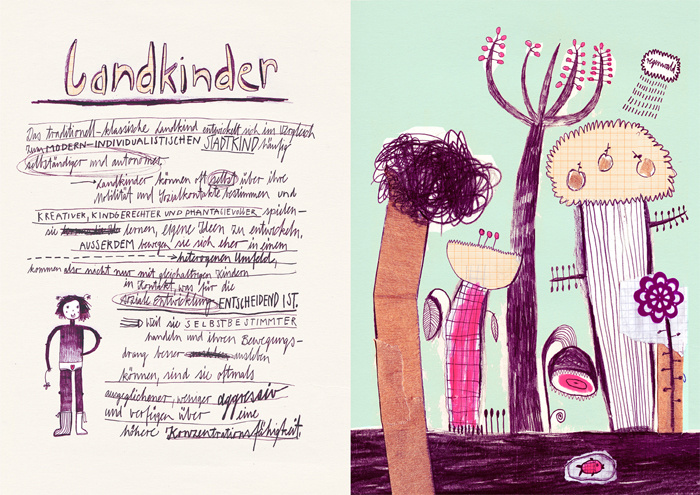 Landkinder
Das traditionell-klassische Landkind entwickelt sich im Vergleich
zum MODERN-INDIVIDUALISTISCHEN STADTKIND häufig
selbständiger und autonomer.
Landkinder können oft selbst über ihre
Mobilität und Sozialkontakte bestimmen und
KREATIVER, KINDGERECHTER UND PHANTASIEVOLLER spielen-
sie lernen, eigene Ideen zu entwickeln.
AUSSERDEM bewegen sie sich eher in einem
heterogenen Umfeld,
kommen also nicht nur mit gleichaltrigen Kindern
in Kontakt, was für die
soziale Entwicklung ENTSCHEIDEND IST.
Weil sie SELBSTBESTIMMTER
handeln und ihren Bewegungs-
drang besser ausleben
können, sind sie oftmals
ausgeglichener, weniger aggressiv
und verfügen über eine
höhere Konzentrationsfähigkeit.